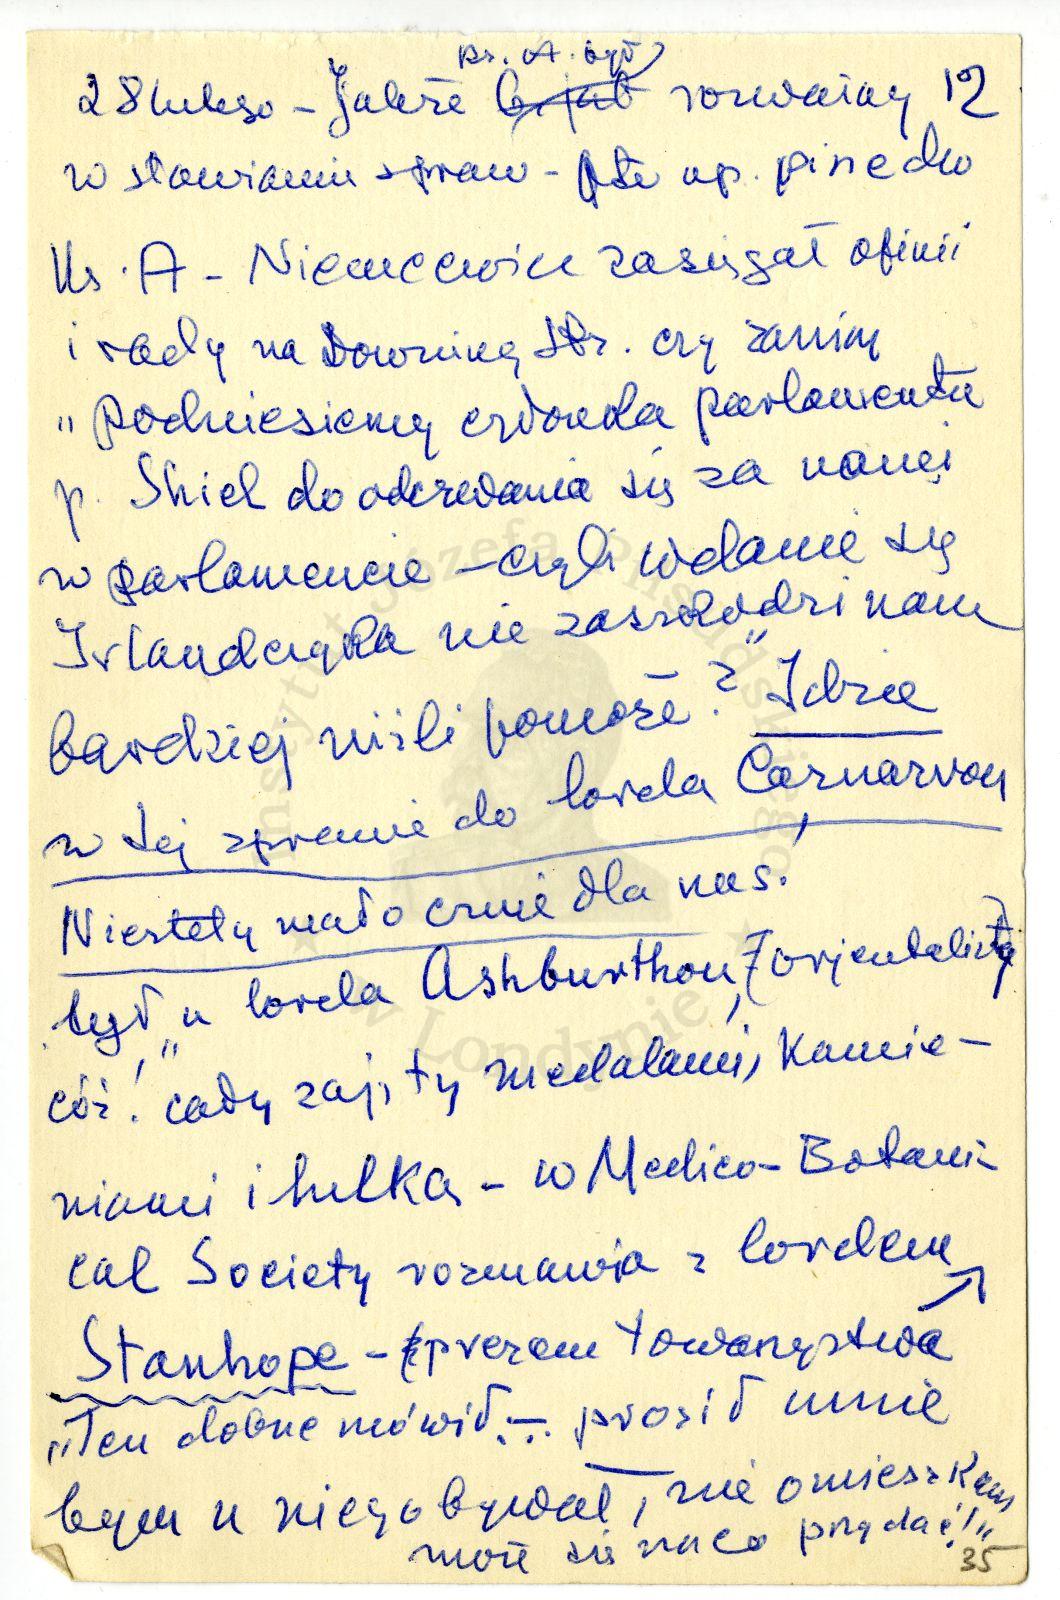 ks. A. był
28 lutego – Jakże był rozważny 12
w stawianiu spraw – np. pisze do
Ks. A – Niemcewicz zasięgał opinii
i rady na Downing Str. czy zanim
„podniesiemy członka parlamentu
p. Shiel do odezwania się za nami
w parlamencie – czyli wdanie się
Irlandczyka nie zaszkodzi nam
bardziej niżli pomoże?" Idzie
w tej sprawie do lorda Carnarvon,
Niestety mało czuje dla nas!
był „u lorda Ashburthon, (orjentalista)
cóż! cały zajęty medalami, kamie–
niami i hulką – w Medico–Botani–
cal Society rozmawia z lordem
Stanhope – prezem towarzystwa
„Ten dobrze mówił... prosił mnie
bym u niego bywał, nie omieszkam
może się na co przydać!"
35
Instytut Józefa Piłsudskiego
w Londynie